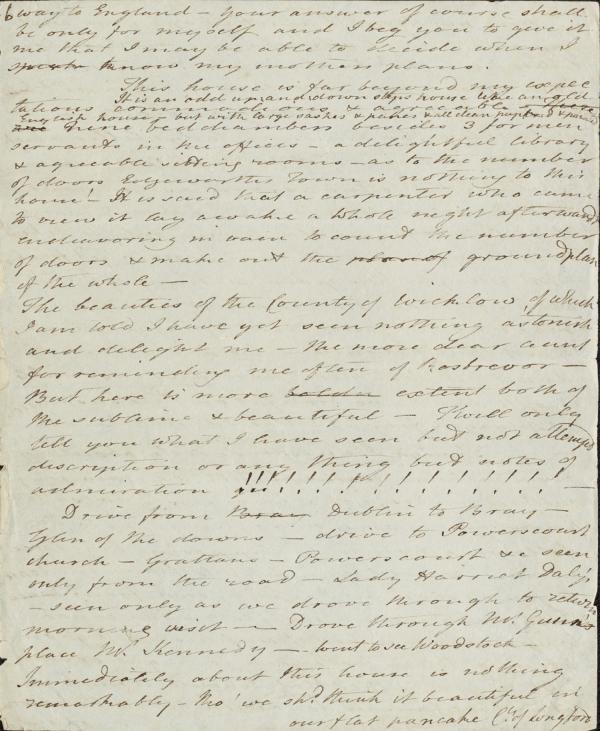 6 way to England – your answer of course shall
be only for myself and I beg you to give it
me that I may be able to decide when I
know my mothers plans.
This house is far beyond my expec
tations It is an odd up and down stairs house like an old
English house – but with large sashes & all clean papered & painted
commodious & agreeable
nine bedchambers besides 3 for men
servants in the offices – a delightful library
& agreeable sitting rooms – as to the number
of doors Edgeworths Town is nothing to this
house! It is said that a carpenter who came
to view it lay awake a whole night afterwards
endeavoring in vain to count the number
of doors & make out the plan of groundplan
of the whole –
The beauties of the County of Wicklow of which
I am told I have yet seen nothing astonish
and delight me – the more dear aunt
for reminding me often of Rostrevor –
But here is more extent both of
the sublime & beautiful – I will only
tell you what I have seen but not attempt
description or any thing but notes of
admiration !!! ! ! ! ! ! ! ! ! ! ! –
Drive from Bray Dublin to Bray –
Glen of the downs – drive to Powerscourt
church – Grattans – Powerscourt &c seen
only from the road – Lady Harriet Daly's
– seen only as we drove through to return
morning visit – Drove through Mr. Gunns
place Mr. Kennedy – went to see Woodstock –
Immediately about this house is nothing
remarkably – tho' we shd. think it beautiful in
our flat pancake Cy. of Longford